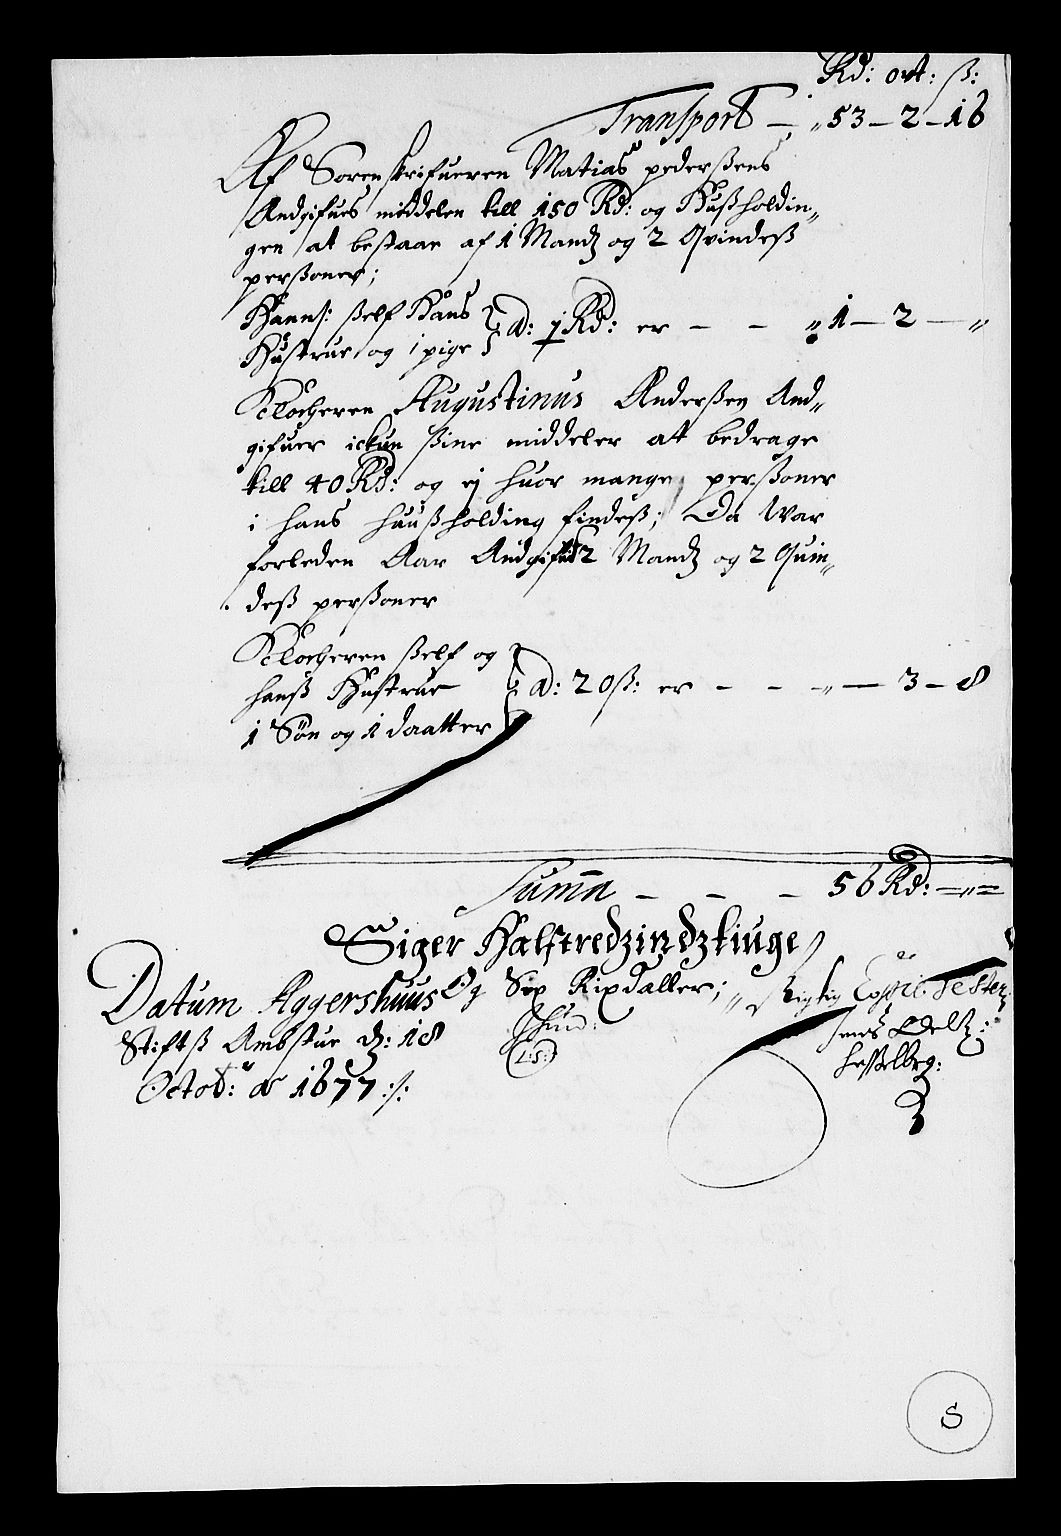 Rd: ort: ß:
Transport — „ 53 — 2 — 16
Af Sorenskrifueren Matias pederßens
Andgifues middelen till 150 Rd: og Hußholdin„
gen at bestaar af 1 Mandz og 2 Qvindeß
perßoner;
Hannß: ßelf Hans
Hustrue og 1 pige } a: ½ Rd: er — — „ 1 — 2 — „
Klocheren Augustinus Anderßen And„
gifuer ickun ßine middeler at bedrage
till 40 Rd: og ej huor mange perßoner
i hans huußholding findeß; Da War
forleden Aar Andgifued 2 Mandz og 2 Quin„
deß perßoner
Klocheren ßelf og
hanß Hustrue
1 Søn og 1 daatter } a: 20 ß: er — — „ — 3 — 8
Summa — — — 56 Rd: — „ —
Siger Halftredzindztiuge
Og Sex Rixdaller;
Datum Aggershuus
Stiftß Ambstue d: 18
Octob: Ao 1677 :/:
(L:S:)
Rigtig Copie Tester
Hesselberg:
S